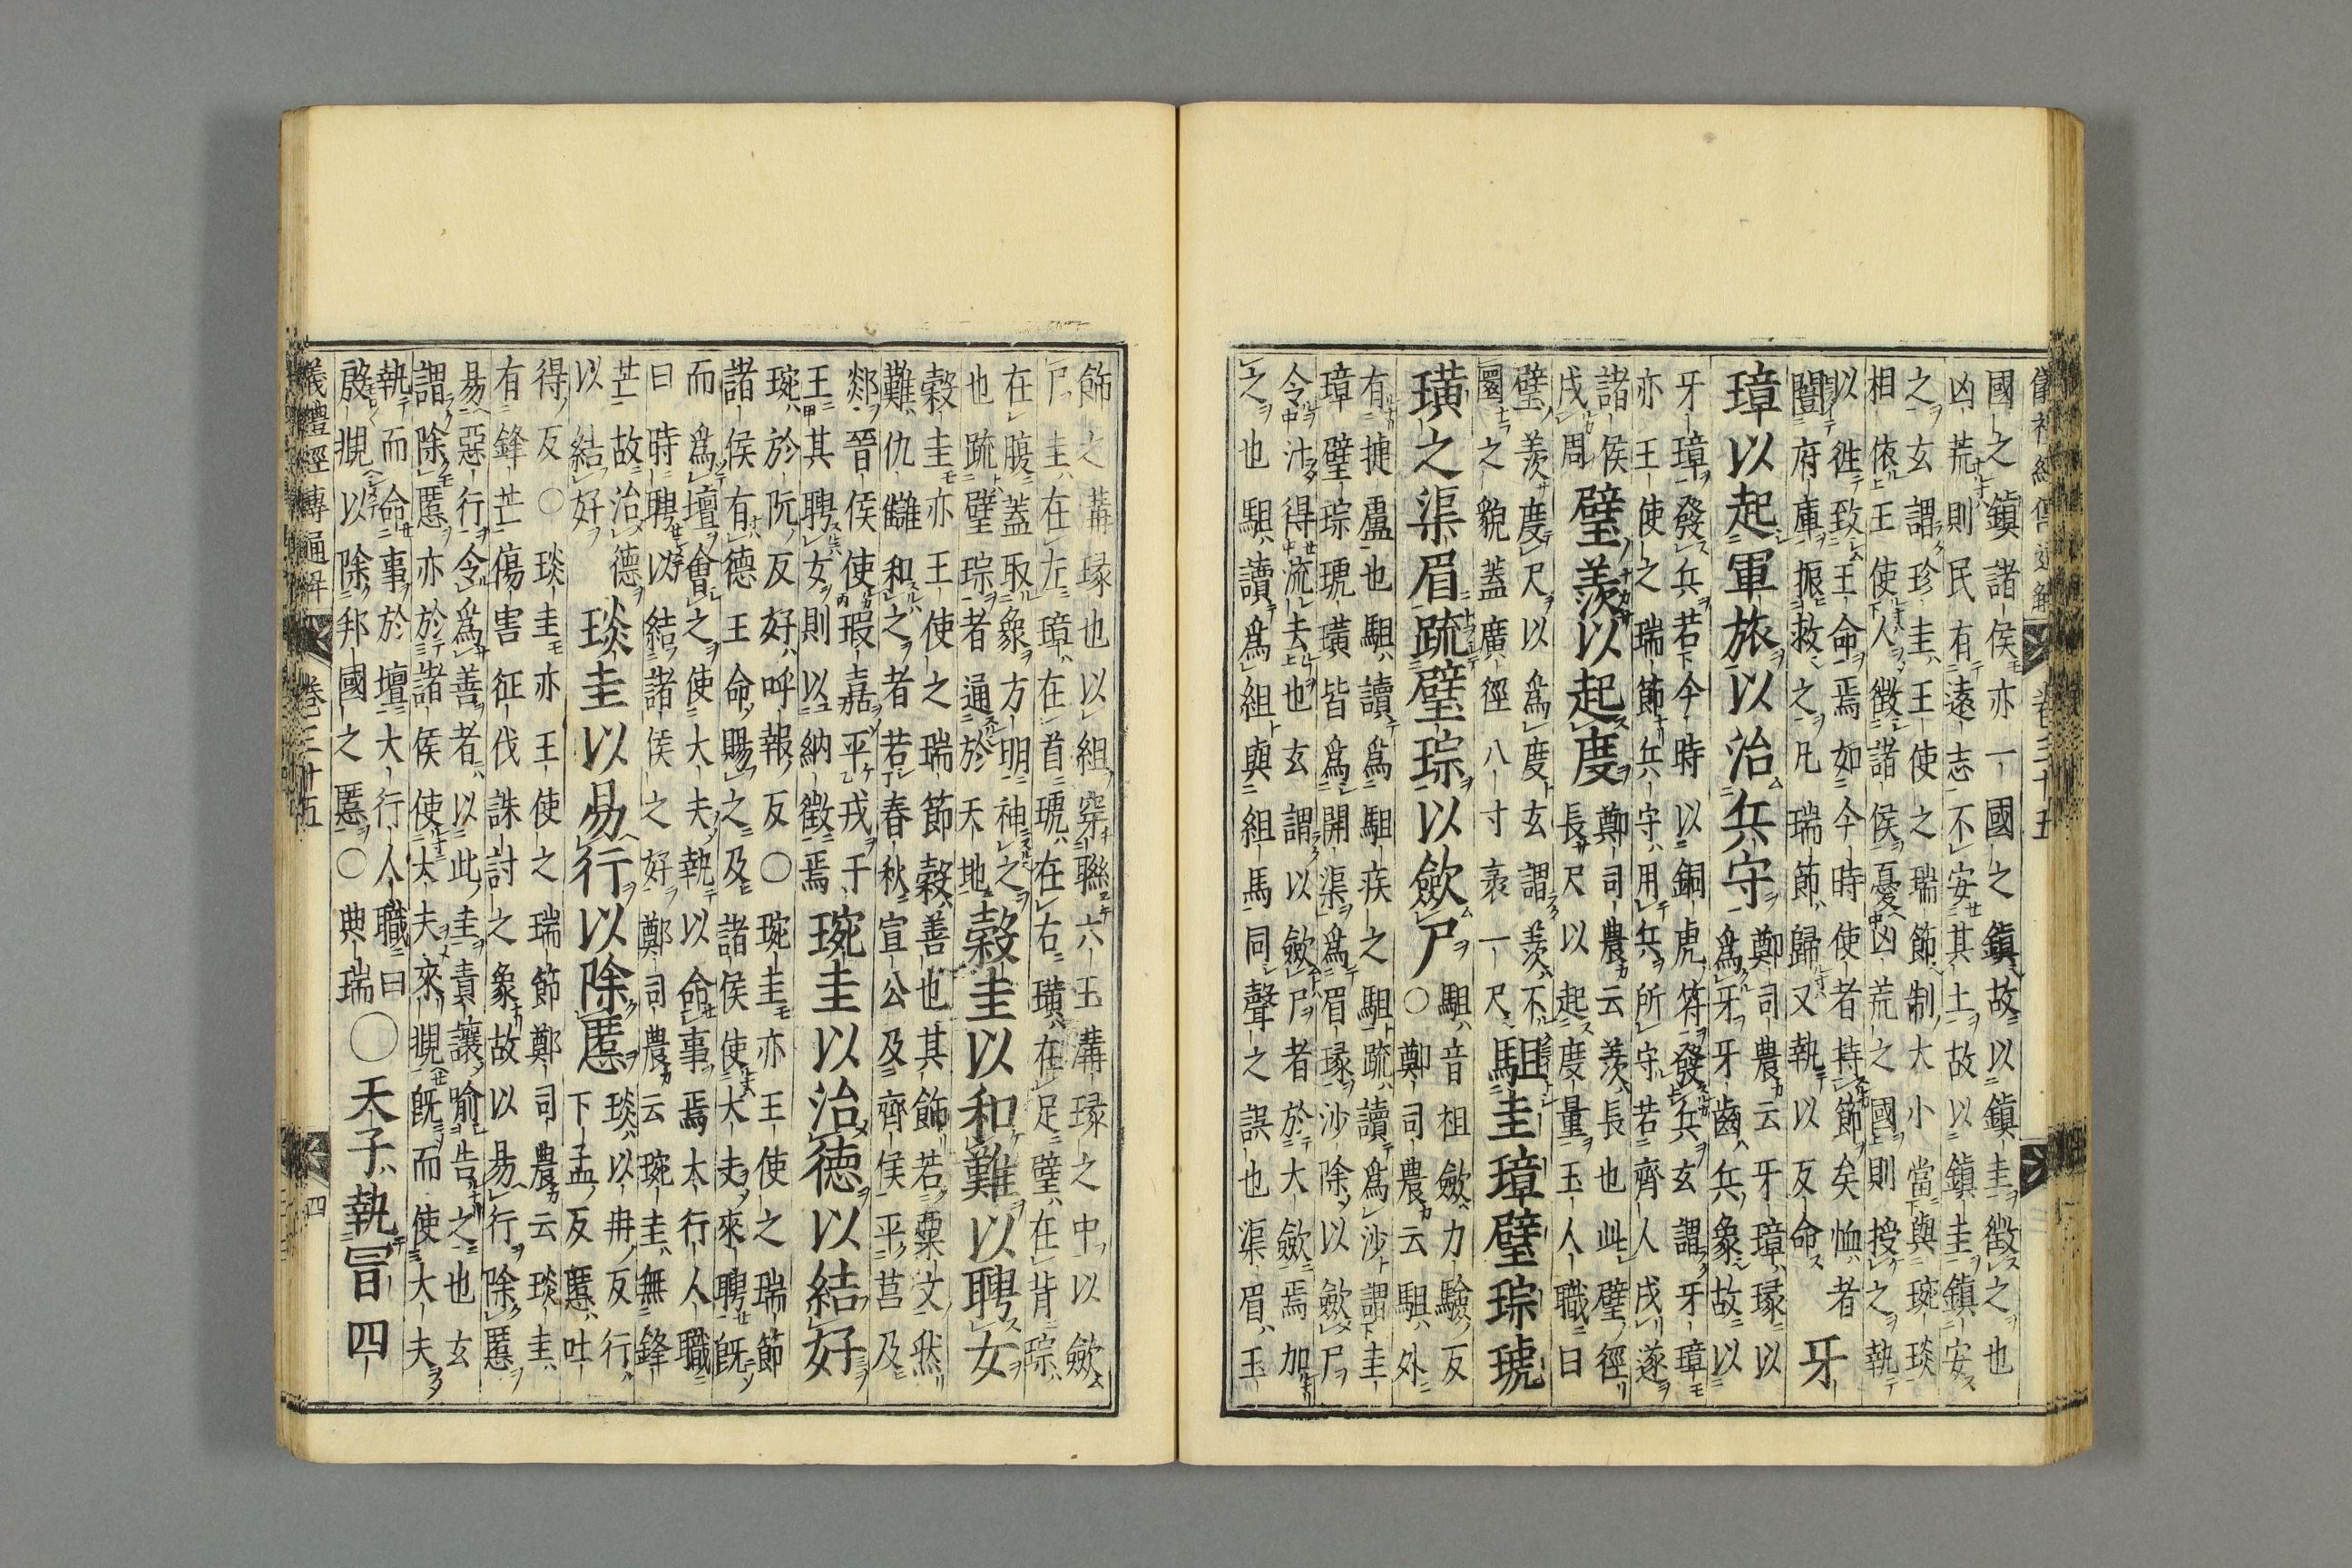 儀禮經傳通解 卷三十五
國之鎮諸侯亦一國之鎮故以鎮圭徵之也
凶荒則民有遠志不安其土故以鎮圭鎮安
之玄謂珍圭王使之瑞節制大小當與琬琰
相依王使人徵諸侯憂凶荒之國則授之執
以徃致王命焉如今時使者持節矣恤者
闓府庫振救之凡瑞節歸又執以反命
牙
璋以起軍旅以治兵守
鄭司農云牙璋瑑以
爲牙牙齒兵象故以
牙璋發兵若今時以銅虎符發兵玄謂牙璋
亦王使之瑞節兵守用兵所守若齊人戍遂
諸侯戍周
璧羨以起度
鄭司農云羨長也此璧徑
長尺以起度量玉人職曰
璧羨度尺以爲度玄謂羨不
圜之貌蓋廣徑八寸袤一尺
駔圭璋璧琮琥
璜之渠眉疏璧琮以斂尸
駔音祖斂力驗反
○鄭司農云駔外
有捷盧也駔讀爲駔疾之駔疏讀爲沙謂圭
璋璧琮琥璜皆爲開渠爲眉瑑沙除以斂尸
令汁得流去也玄謂以斂尸者於大斂焉加
之也駔讀爲組與組馬同聲之誤也渠眉玉
飾之溝瑑也以組穿聯六玉溝瑑之中以斂
尸圭在左璋在首琥在右璜在足璧在背琮
在腹蓋取象方明神之
也疏璧琮者通於天地
穀圭以和難以聘女
穀圭亦王使之瑞節穀善也其飾若粟文然
難仇讎和之者若春秋宣公及齊侯平莒及
郯晉侯使瑕嘉平戎于
王其聘女則以納徵焉
琬圭以治德以結好
琬於阮反好呼報反○琬圭亦王使之瑞節
諸侯有德王命賜之及諸侯使大夫來聘旣
而爲壇會之使大夫執以命事焉大行人職
曰時聘以結諸侯之好鄭司農云琬圭無鋒
芒故治德
以結好
琰圭以易行以除慝
琰以冉反行
下孟反慝吐
得反○琰圭亦王使之瑞節鄭司農云琰圭
有鋒芒傷害征伐誅討之象故以易行除慝
易惡行令爲善者以此圭責讓喻告之也玄
謂除慝亦於諸侯使大夫來覜旣而使大夫
執而命事於壇大行人職曰
殷覜以除邦國之慝○典瑞
○天子執冒四
儀禮經傳通解 卷三十五 四